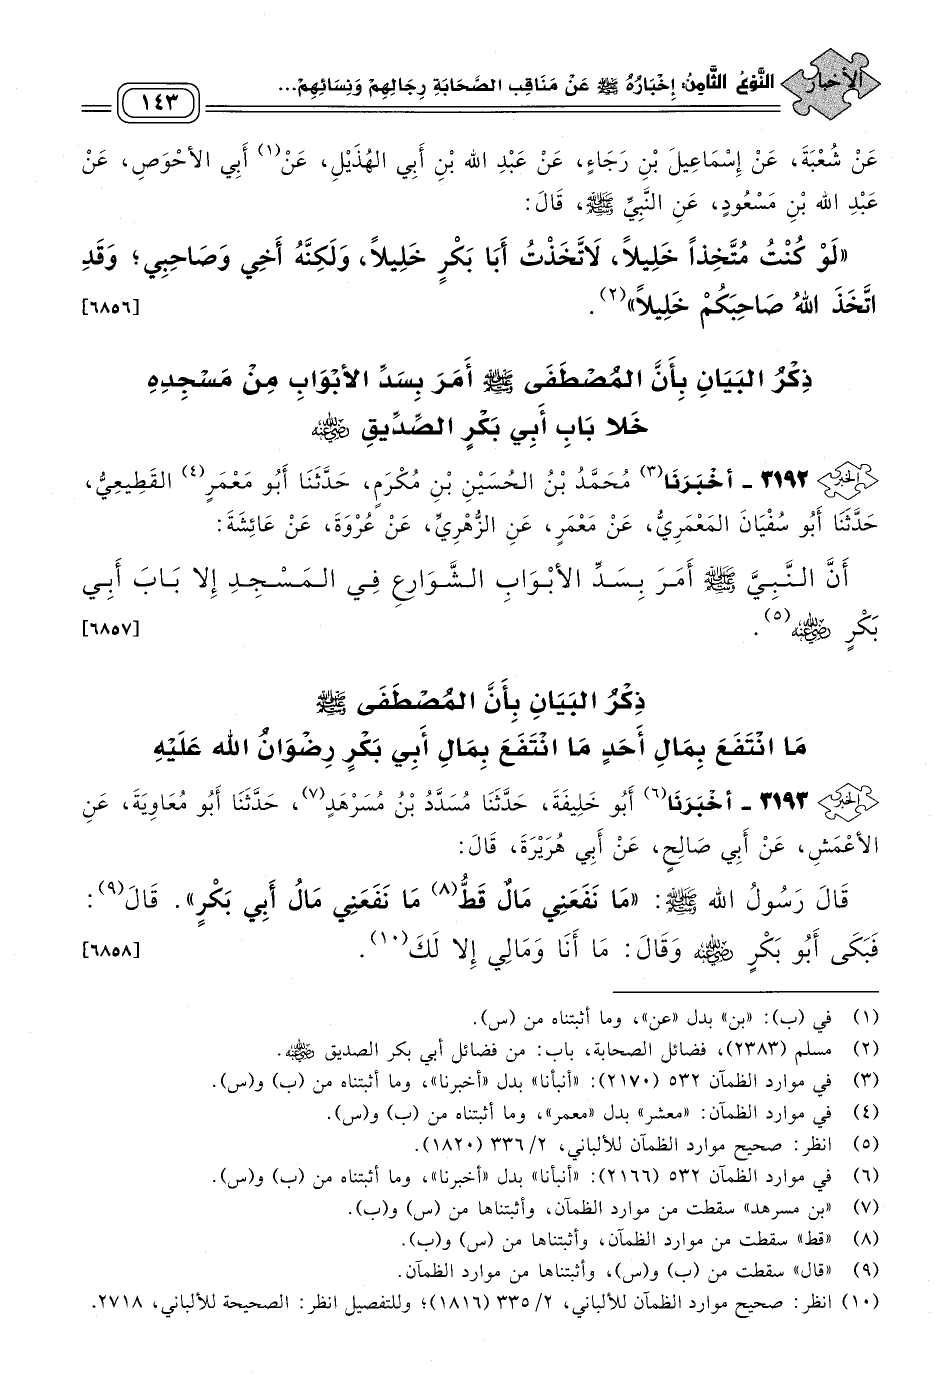 الأخبار
النَّوْعُ الثَّامِنُ: إِخْبَارُهُ ﷺ عَنْ مَنَاقِبِ الصَّحَابَةِ رِجَالِهِمْ وَنِسَائِهِمْ...
١٤٣
عَنْ شُعْبَةَ، عَنْ إِسْمَاعِيلَ بْنِ رَجَاءٍ، عَنْ عَبْدِ الله بْنِ أَبِي الهُذَيْلِ، عَنْ(١) أَبِي الأَحْوَصِ، عَنْ
عَبْدِ الله بْنِ مَسْعُودٍ، عَنِ النَّبِيِّ ﷺ، قَالَ:
«لَوْ كُنْتُ مُتَّخِذاً خَلِيلاً، لَاتَّخَذْتُ أَبَا بَكْرٍ خَلِيلاً، وَلَكِنَّهُ أَخِي وَصَاحِبِي؛ وَقَدِ
اتَّخَذَ اللهُ صَاحِبَكُمْ خَلِيلاً»(٢). [٦٨٥٦]
ذِكْرُ البَيَانِ بِأَنَّ المُصْطَفَى ﷺ أَمَرَ بِسَدِّ الأَبْوَابِ مِنْ مَسْجِدِهِ
خَلا بَابِ أَبِي بَكْرٍ الصِّدِّيقِ رضي الله عنه
٣١٩٢ - أَخْبَرَنَا(٣) مُحَمَّدُ بْنُ الحُسَيْنِ بْنِ مُكْرَمٍ، حَدَّثَنَا أَبُو مَعْمَرٍ(٤) القَطِيعِيُّ،
حَدَّثَنَا أَبُو سُفْيَانَ المَعْمَرِيُّ، عَنْ مَعْمَرٍ، عَنِ الزُّهْرِيِّ، عَنْ عُرْوَةَ، عَنْ عَائِشَةَ:
أَنَّ النَّبِيَّ ﷺ أَمَرَ بِسَدِّ الأَبْوَابِ الشَّوَارِعِ فِي المَسْجِدِ إِلا بَابَ أَبِي
بَكْرٍ رضي الله عنه(٥). [٦٨٥٧]
ذِكْرُ البَيَانِ بِأَنَّ المُصْطَفَى ﷺ
مَا انْتَفَعَ بِمَالِ أَحَدٍ مَا انْتَفَعَ بِمَالِ أَبِي بَكْرٍ رِضْوَانُ الله عَلَيْهِ
٣١٩٣ - أَخْبَرَنَا(٦) أَبُو خَلِيفَةَ، حَدَّثَنَا مُسَدَّدُ بْنُ مُسَرْهَدٍ(٧)، حَدَّثَنَا أَبُو مُعَاوِيَةَ، عَنِ
الأَعْمَشِ، عَنْ أَبِي صَالِحٍ، عَنْ أَبِي هُرَيْرَةَ، قَالَ:
قَالَ رَسُولُ الله ﷺ: «مَا نَفَعَنِي مَالٌ قَطُّ(٨) مَا نَفَعَنِي مَالُ أَبِي بَكْرٍ». قَالَ(٩):
فَبَكَى أَبُو بَكْرٍ رضي الله عنه وَقَالَ: مَا أَنَا وَمَالِي إِلا لَكَ(١٠). [٦٨٥٨]
(١) في (ب): «بن» بدل «عن»، وما أثبتناه من (س).
(٢) مسلم (٢٣٨٣)، فضائل الصحابة، باب: من فضائل أبي بكر الصديق رضي الله عنه.
(٣) في موارد الظمآن ٥٣٢ (٢١٧٠): «أنبأنا» بدل «أخبرنا»، وما أثبتناه من (ب) و(س).
(٤) في موارد الظمآن: «معشر» بدل «معمر»، وما أثبتناه من (ب) و(س).
(٥) انظر: صحيح موارد الظمآن للألباني، ٢/ ٣٣٦ (١٨٢٠).
(٦) في موارد الظمآن ٥٣٢ (٢١٦٦): «أنبأنا» بدل «أخبرنا»، وما أثبتناه من (ب) و(س).
(٧) «بن مسرهد» سقطت من موارد الظمآن، وأثبتناها من (س) و(ب).
(٨) «قط» سقطت من موارد الظمآن، وأثبتناها من (س) و(ب).
(٩) «قال» سقطت من (ب) و(س)، وأثبتناها من موارد الظمآن.
(١٠) انظر: صحيح موارد الظمآن للألباني، ٢/ ٣٣٥ (١٨١٦)؛ وللتفصيل انظر: الصحيحة للألباني، ٢٧١٨.